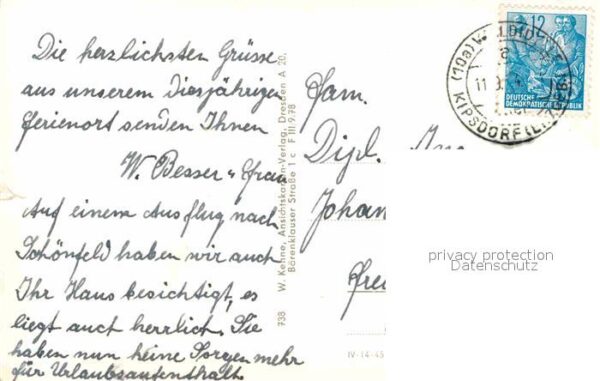 Die herzlichsten Grüsse
aus unserem Diesjährigen
Ferienort senden Ihnen
W. Besser u Frau
Auf einem Ausflug nach
Schönfeld haben wir auch
Ihr Haus besichtigt, es
liegt auch herrlich. Sie
haben nun keine Sorgen mehr
für Urlaubsaufenthalt.
738 W. Kehne, Ansichtskarten-Verlag, Dresden A 20,
Bärenklauser Straße 1 F III.9.78
Fam.
Dipl.
Johan
Fre
IV-14-45
12
DEUTSCHE
DEMOKRATISCHE REPUBLIK
(10a)
KIPSDORF
privacy protection
Datenschutz